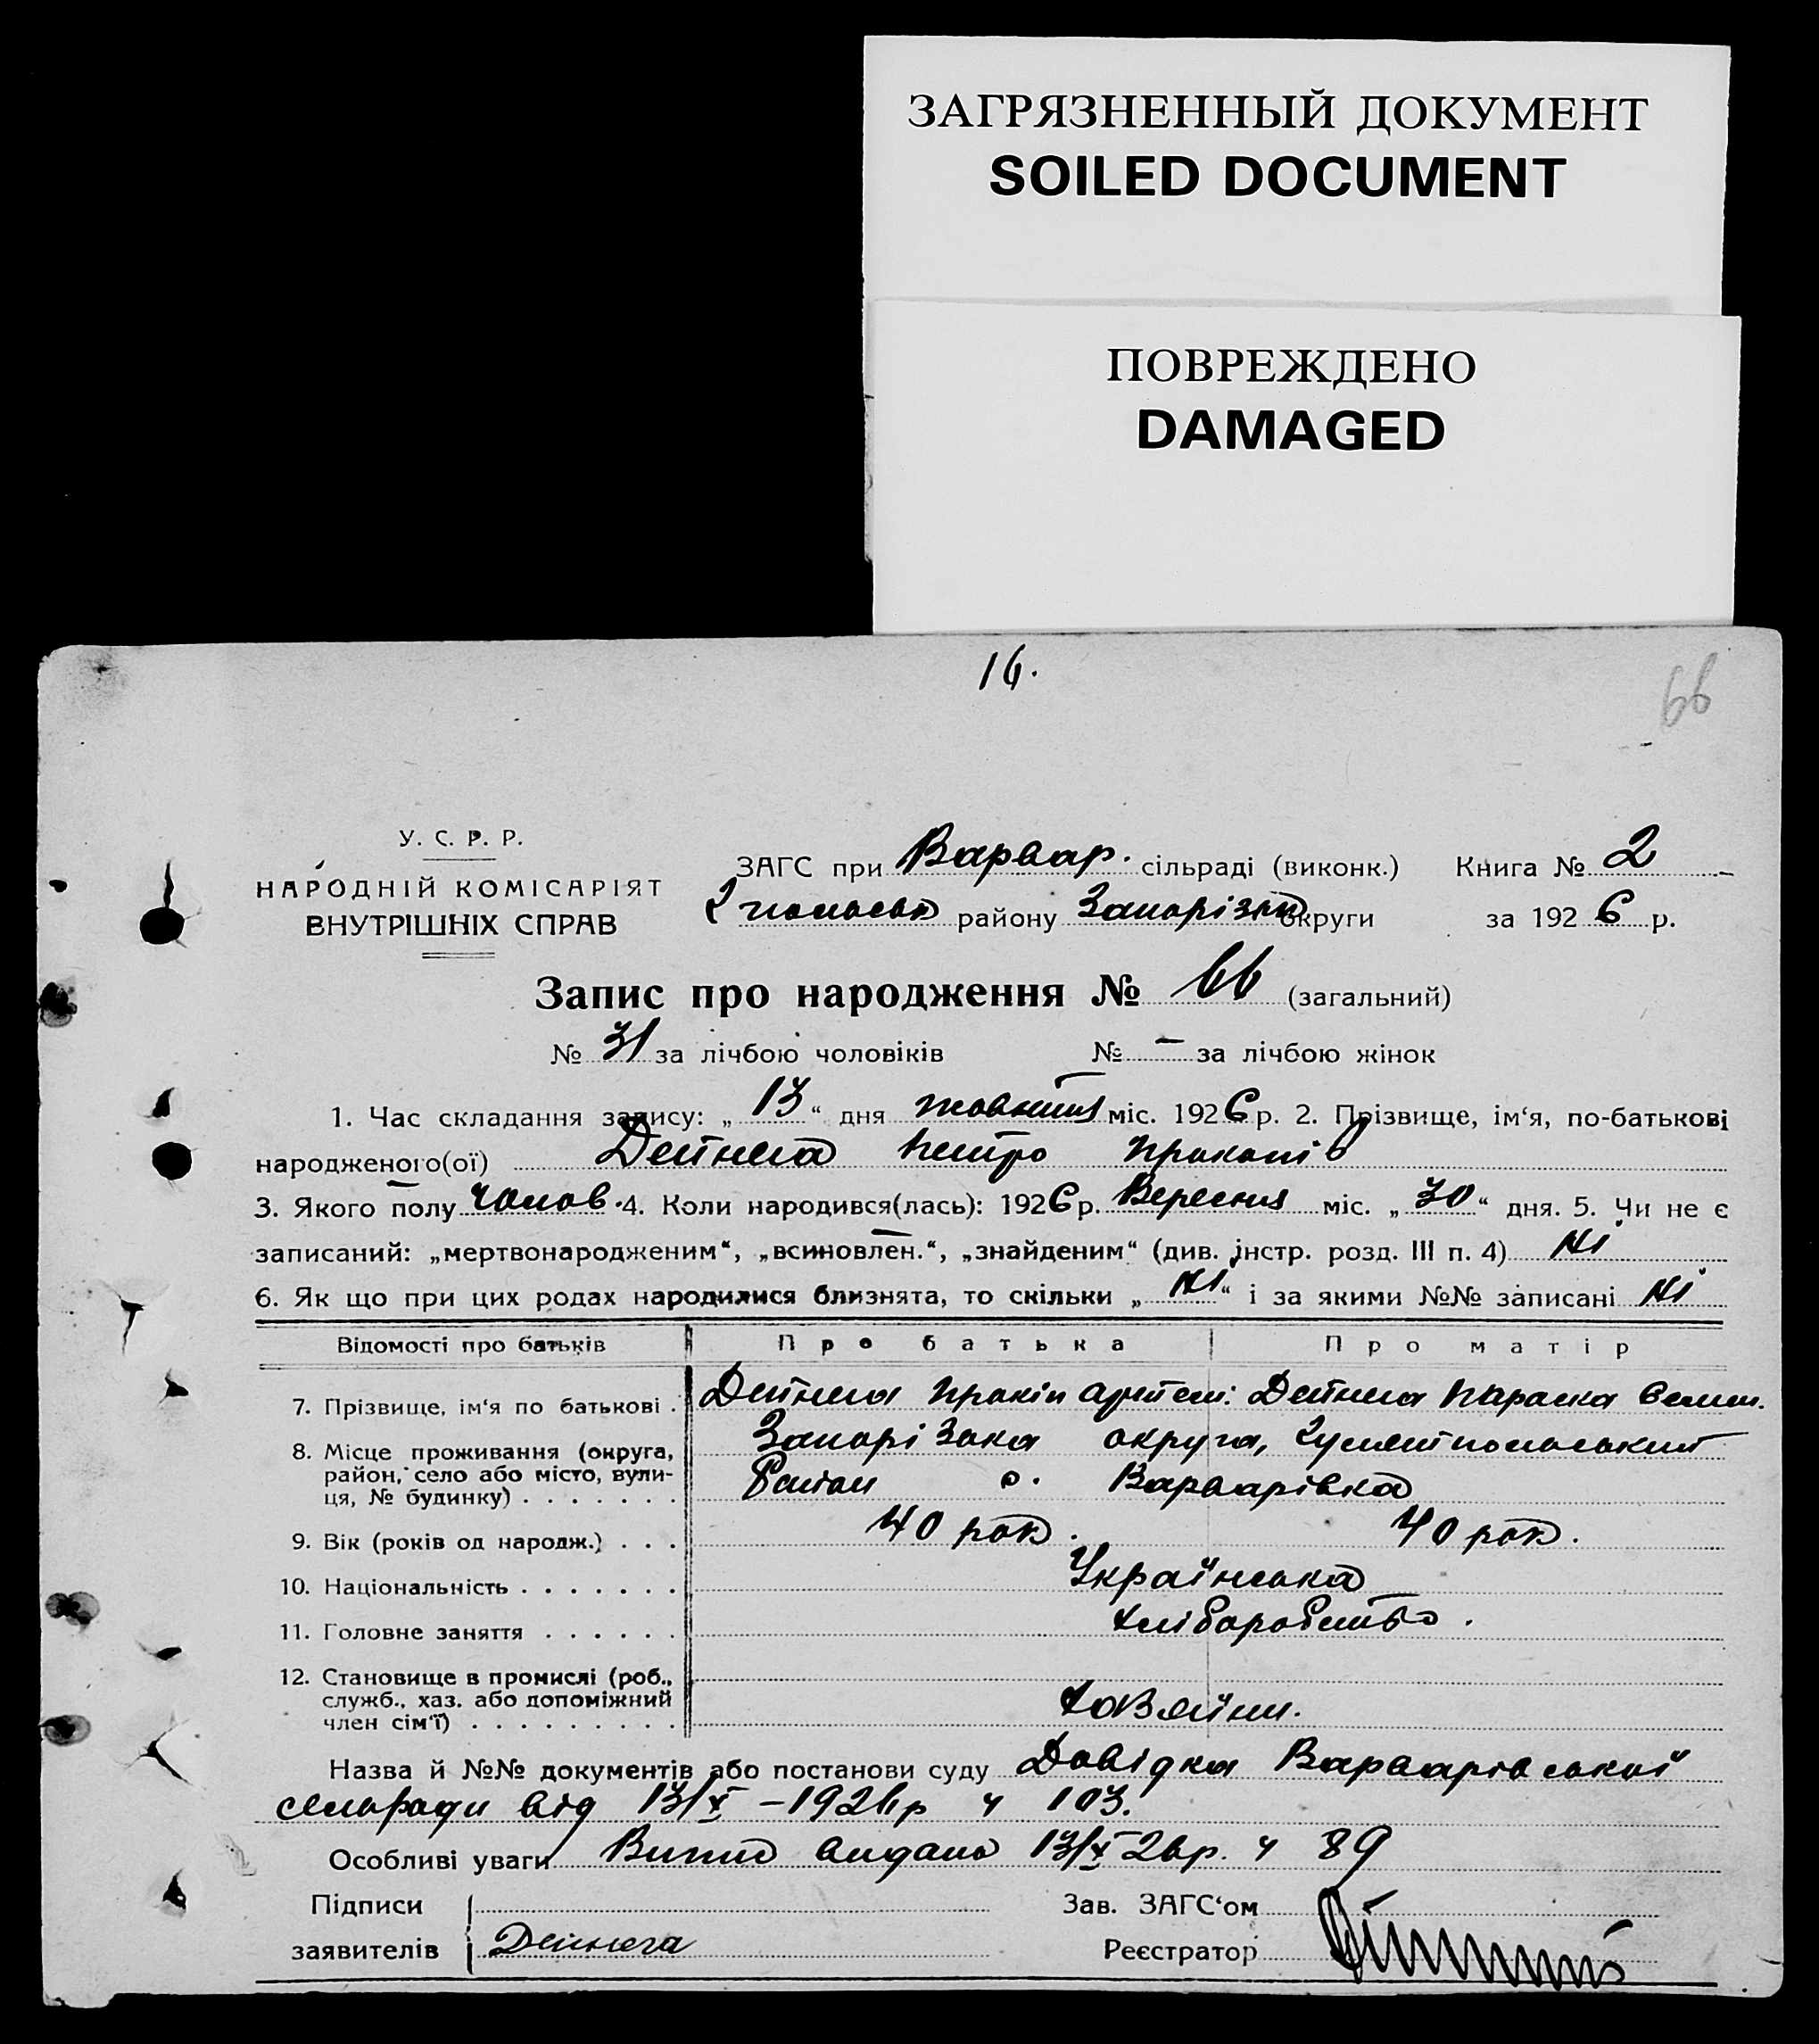 ЗАГРЯЗНЕННЫЙ ДОКУМЕНТ
SOILED DOCUMENT
ПОВРЕЖДЕНО
DAMAGED
16.
66
У. С. Р. Р.
НАРОДНІЙ КОМІСАРІЯТ
ВНУТРІШНІХ СПРАВ
ЗАГС при Варвар. сільраді (виконк.) Книга № 2
району Запорізьк округи за 1926 р.
Запис про народження № 66 (загальний)
№ 31 за лічбою чоловіків № — за лічбою жінок
1. Час складання запису: „13“ дня жовтня міс. 1926 р. 2. Прізвище, ім‘я, по-батькові
народженого(ої) Дейнега Петро Прокопів
3. Якого полу чолов. 4. Коли народився(лась): 1926 р. Вересня міс. „30“ дня. 5. Чи не є
записаний: „мертвонародженим“, „всиновлен.“, „знайденим“ (див. інстр. розд. III п. 4) ні
6. Як що при цих родах народилися близнята, то скільки „ні“ і за якими №№ записані ні
Відомості про батьків Про батька Про матір
7. Прізвище, ім‘я по батькові . Дейнега Прокіп Дейнега Параска Семен.
8. Місце проживання (округа, Запорізька округа, Гуляйпольський
район, село або місто, вули- Район с. Варварівка
ця, № будинку) . . . . . . .
9. Вік (років од народж.) . . . 40 рок. 40 рок.
10. Національність . . . . . . . Українська
11. Головне заняття . . . . . . хліборобство.
12. Становище в промислі (роб.,
служб., хаз. або допоміжний
член сім‘ї) . . . . . . . . . хазяїни.
Назва й №№ документів або постанови суду Довідка Варварівської
сельради від 13/X –1926р ч 103.
Особливі уваги Випис видано 13/X 26р. ч 89
Підписи Зав. ЗАГС‘ом
заявителів Дейнега Реєстратор